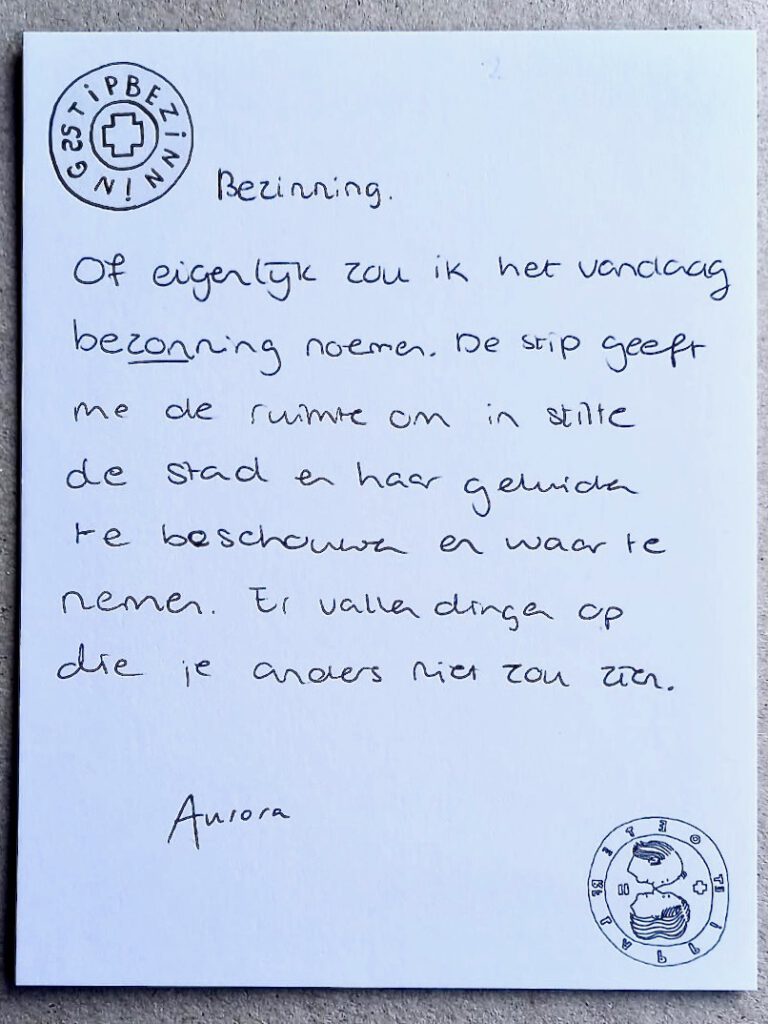 BEZINNINGSSTIP
Bezinning.
Of eigenlijk zou ik het vandaag
bezonning noemen. De stip geeft
me de ruimte om in stilte
de stad en haar geluiden
te beschouwen en waar te
nemen. Er vallen dingen op
die je anders niet zou zien.
Aurora